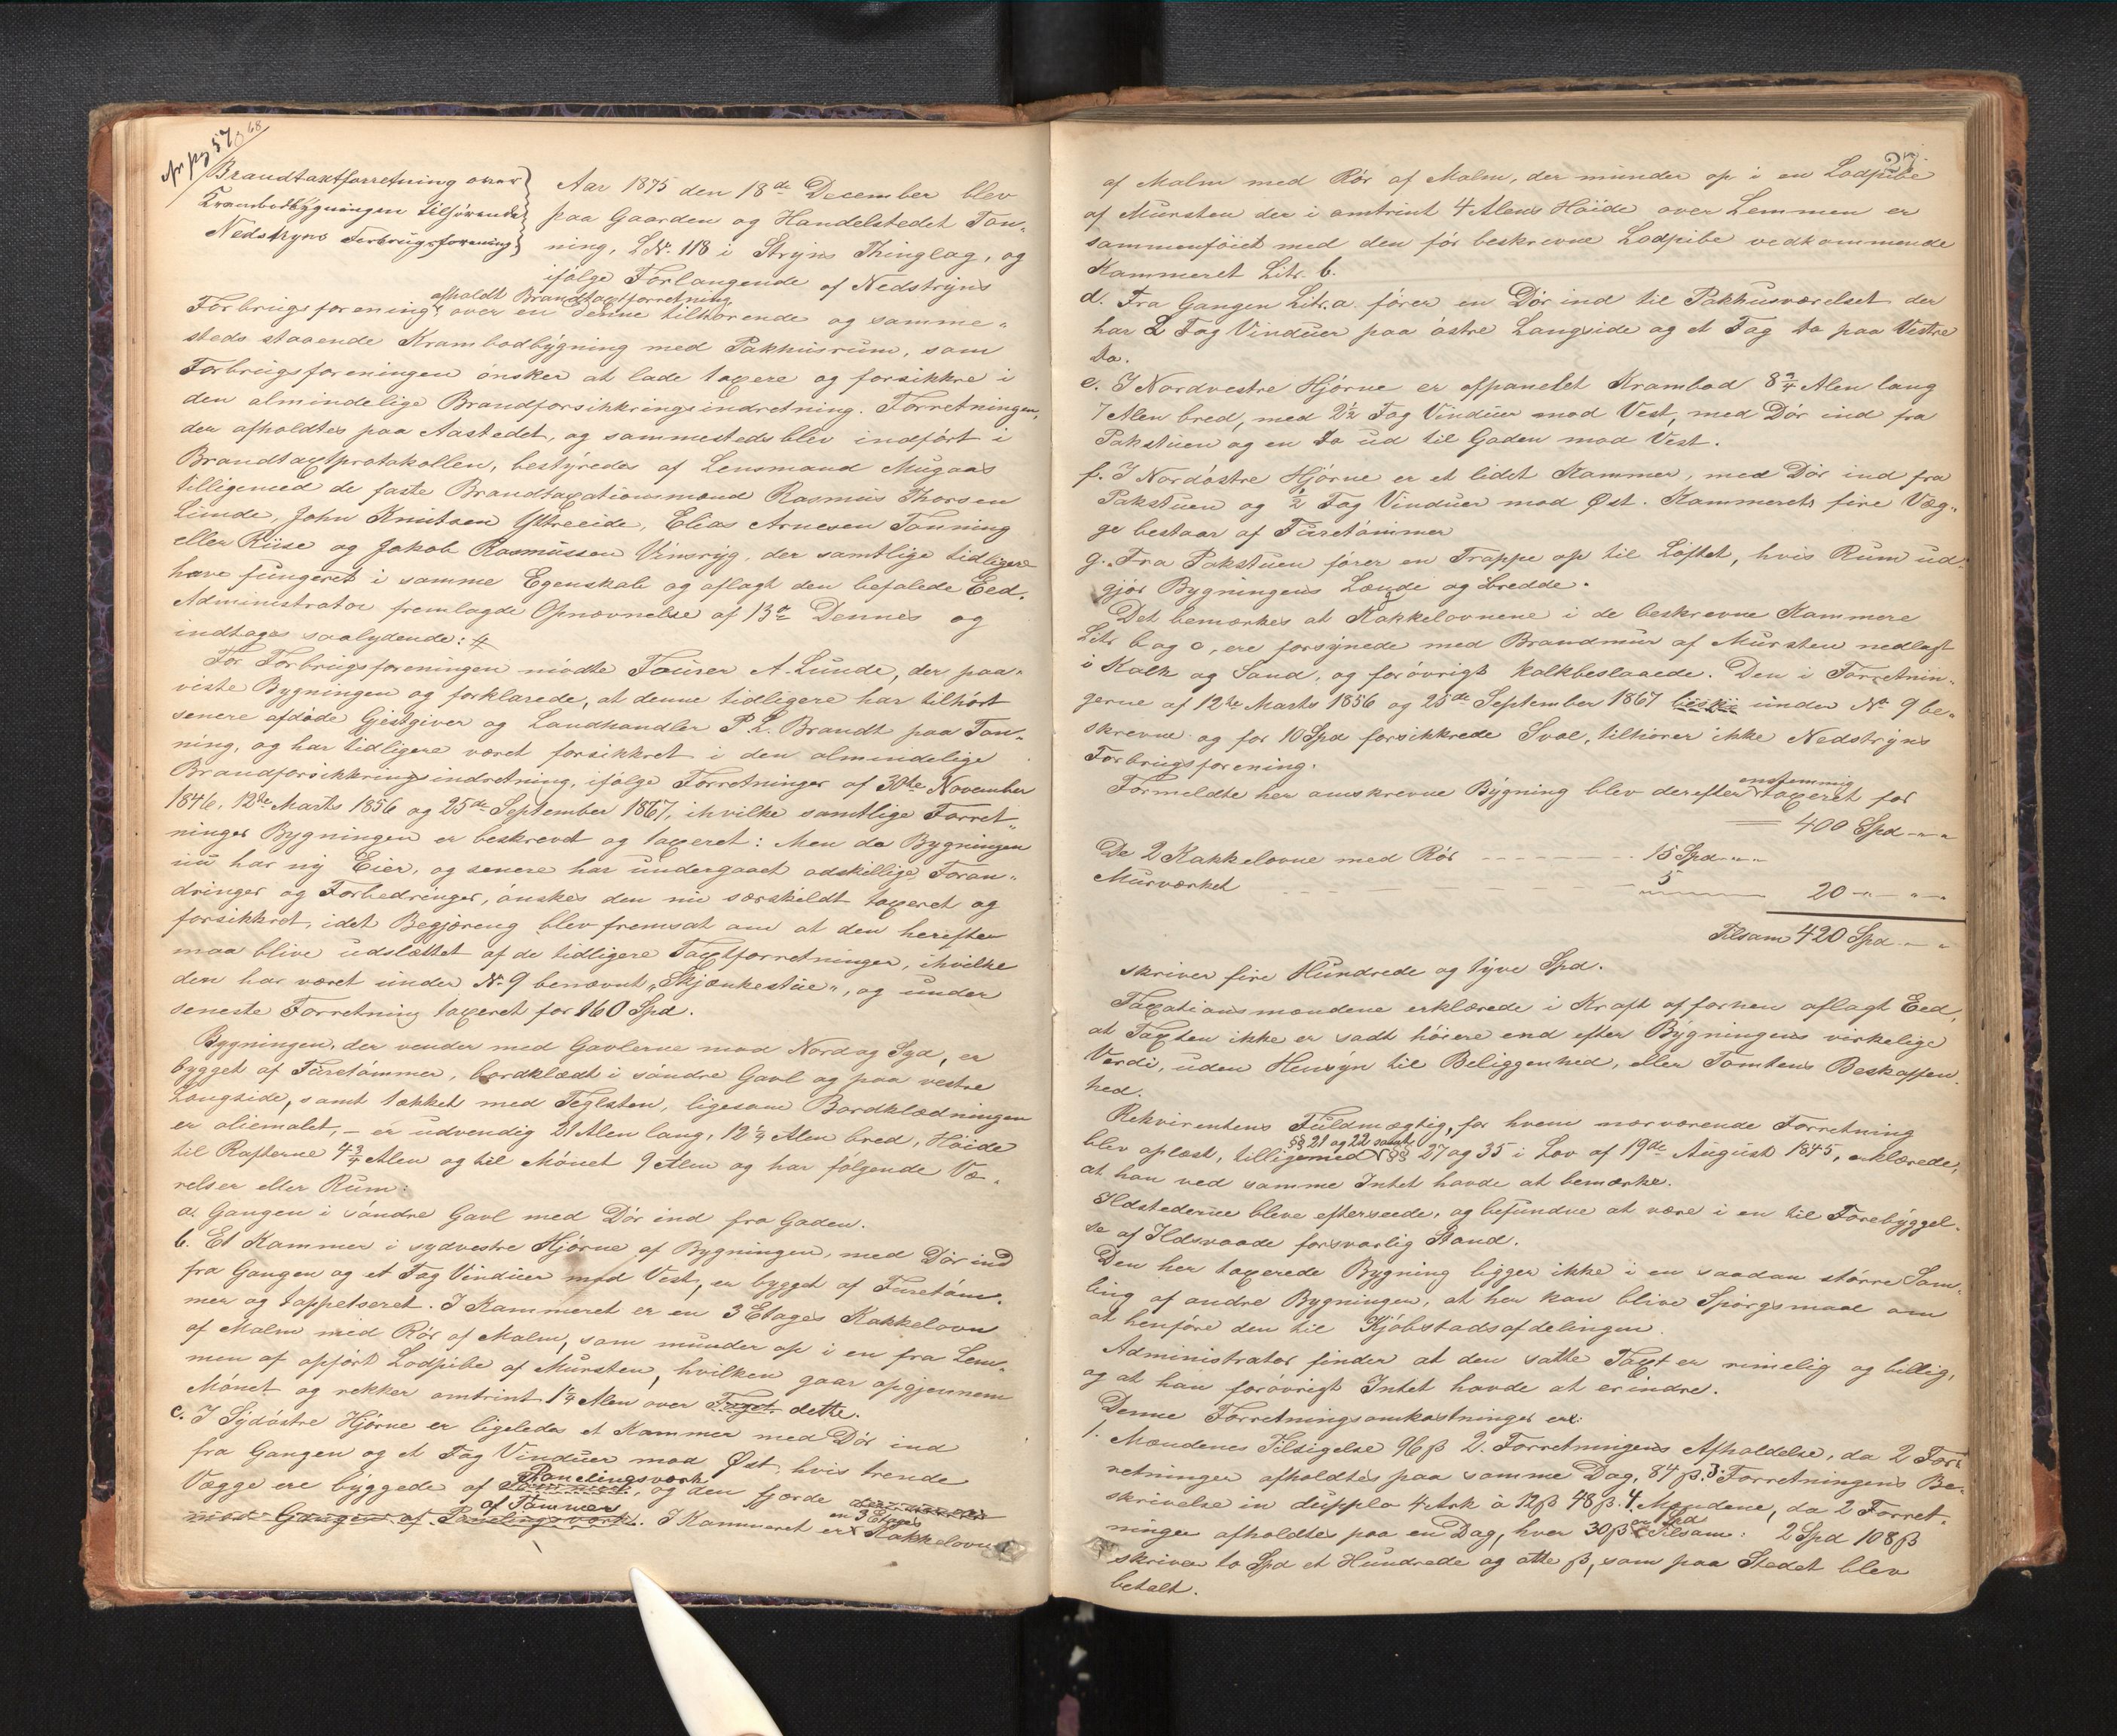 pag 57 68
Brandtaxtforretning over
Krambodbygningen tilhørende
Nedstryns Forbrugsforening
Aar 1875 den 18de December blev
paa Gaarden og Handelstedet Ton-
ning, L.№ 118 i Stryns Thinglag, og
ifølge Forlangende af Nedstryns
afholdt Brandtaxtforretning
Forbrugsforening over en denne tilhørende og samme-
steds staaende Krambodbygning med Pakhusrum, som
Forbrugsforeningen ønsker at lade taxere og forsikkre i
den almindelige Brandforsikkringsindretning. Forretningen,
der afholdtes paa Aastedet, og sammesteds blev indført i
Brandtaxtprotokollen, bestyredes af Lensmand Mugaas
tilligemed de faste Brandtaxationsmænd Rasmus Thorsen
Lunde, John Knutsen Ytreeide, Elias Arnesen Tonning
eller Riise og Jakob Rasmussen Vinsryg, der samtlige tidligere
have fungeret i samme Egenskab og aflagt den befalede Eed.
Administrator fremlagde Opnævnelse af 13de Dennes og
indtages saalydende: #
For Forbrugsforeningen mødte Touser A. Lunde, der paa-
viste Bygningen og forklarede, at denne tidligere har tilhørt
senere afdøde Gjestgiver og Landhandler P. L. Brandt paa Ton-
ning, og har tidligere været forsikkret i den almindelige
Brandforsikkringsindretning, ifølge Forretninger af 30te November
1846, 12te Marts 1856 og 25de September 1867, ihvilke samtlige Forret-
ninger Bygningen er beskrevet og taxeret: Men da Bygningen
nu har ny Eier, og senere har undergaaet adskillige Foran-
dringer og Forbedringer, ønskes den nu særskildt taxeret og
forsikkret, idet Begjæreng blev fremsat om at den herefter
maa blive udslættet af de tidligere Taxtforretninger, ihvilke
den har været under № 9 benævnt „Skjænkestue", og under
seneste Forretning taxeret for 160 Spd.
Bygningen, der vender med Gavlerne mod Nord og Syd, er
bygget af Furetømmer, bordklædt i søndre Gavl og paa vestre
Langside, samt tækket med Teglsten, ligesom Bordklædningen
er oliemalet, – er udvendig 21 Alen lang, 12 1/4 Alen bred, Høide
til Rafterne 4 3/4 Alen og til Mønet 9 Alen og har følgende Væ-
relser eller Rum:
a. Gangen i søndre Gavl med Dør ind fra Gaden.
b. Et Kammer i sydvestre Hjørne af Bygningen, med Dør ind
fra Gangen og et Fag Vinduer mod Vest, er bygget af Furetøm-
mer og tappetseret. I Kammeret er en 3 Etages Kakkelovn
af Malm med Rør af Malm, som munder op i en fra Lem-
men af opført Lodpibe af Mursten, hvilken gaar opgjennem
Mønet og rekker omtrint 1 1/4 Alen over Taget dette.
c. I Sydøstre Hjørne er ligeledes et Kammer med Dør ind
fra Gangen og et Fag Vinduer mod Øst, hvis trende
Panelingsværk
Vægge ere byggede af , og den fjerde
af Tømmer en 3 Etages
mod Gangen af Panelingsværk. I Kammeret er Kakkelovn
27
af Malm med Rør af Malm, der munder op i en Lodpibe
af Mursten der i omtrint 4 Alens Høide over Lemmen er
sammenføiet med den før beskrevne Lodpibe vedkommende
Kammeret Litr. b.
d. Fra Gangen Litr. a fører en Dør ind til Pakhusværelset der
har 2 Fag Vinduer paa østre Langside og et Fag do paa Vestre
do.
e. I Nordvestre Hjørne er afpanelet Krambod 8 3/4 Alen lang
7 Alen bred, med 2 1/2 Fag Vinduer mod Vest, med Dør ind fra
Pakstuen og en do ud til Gaden mod Vest.
f. I Nordøstre Hjørne er et lidet Kammer, med Dør ind fra
Pakstuen og 1/2 Fag Vinduer mod Øst. Kammerets fire Væg-
ge bestaar af Furetømmer
g. Fra Pakstuen fører en Trappe op til Loftet, hvis Rum ud-
gjør Bygningens Længde og Bredde.
Det bemærkes at Kakkelovnene i de beskrevne Kammere
Litr b og c, ere forsynede med Brandmur af Mursten nedlagt
i Kalk og Sand, og forøvrigt kalkbeslaaede. Den i Forretnin-
gerne af 12te Marts 1856 og 25de September 1867 under № 9 be-
skrevne og for 10 Spd forsikkrede Sval, tilhører ikke Nedstryns
Forbrugsforening.
enstemmig
Formeldte her omskrevne Bygning blev derefter taxeret for
400 Spd
De 2 Kakkelovne med Rør 15 Spd
Murværket 5 20
Tilsam 420 Spd
skriver fire Hundrede og tyve Spd.
Taxationsmændene erklærede i Kraft af forhen aflagt Eed,
at Taxten ikke er sadt høiere end efter Bygningens virkelige
Verdi, uden Hensyn til Beliggenhed, eller Tomtens Beskaffen-
hed.
Rekvirentens Fuldmægtig, for hvem nærværende Forretning
§§ 21 og 22 samt
blev oplæst, tilligemed §§ 27 og 35 i Lov af 19de August 1845, erklærede,
at han ved samme Intet havde at bemærke.
Ildstederne bleve efterseede, og befundne at være i en til Forebyggel-
se af Ildsvaade forsvarlig Stand.
Den her taxerede Bygning ligger ikke i en saadan større Sam-
ling af andre Bygninger, at her kan blive Spørgsmaal om
at henføre den til Kjøbstadsafdelingen.
Administrator finder at den satte Taxt er rimelig og billig,
og at han forøvrigt Intet havde at erindre.
Denne Forretningsomkostninger er:
1. Mændenes Tilsigelse 96 β 2. Forretningens Afholdelse, da 2 For-
retninger afholdtes paa samme Dag, 84 β. 3. Forretningens Be-
skrivelse in dupplo 4 Ark à 12 β 48 β. 4. Mændene, da 2 Forret-
er 1 Spd
ninger afholdtes paa en Dag, hver 30 β Tilsam: 2 Spd 108 β
skriver to Spd et Hundrede og otte β, som paa Stedet blev
betalt.